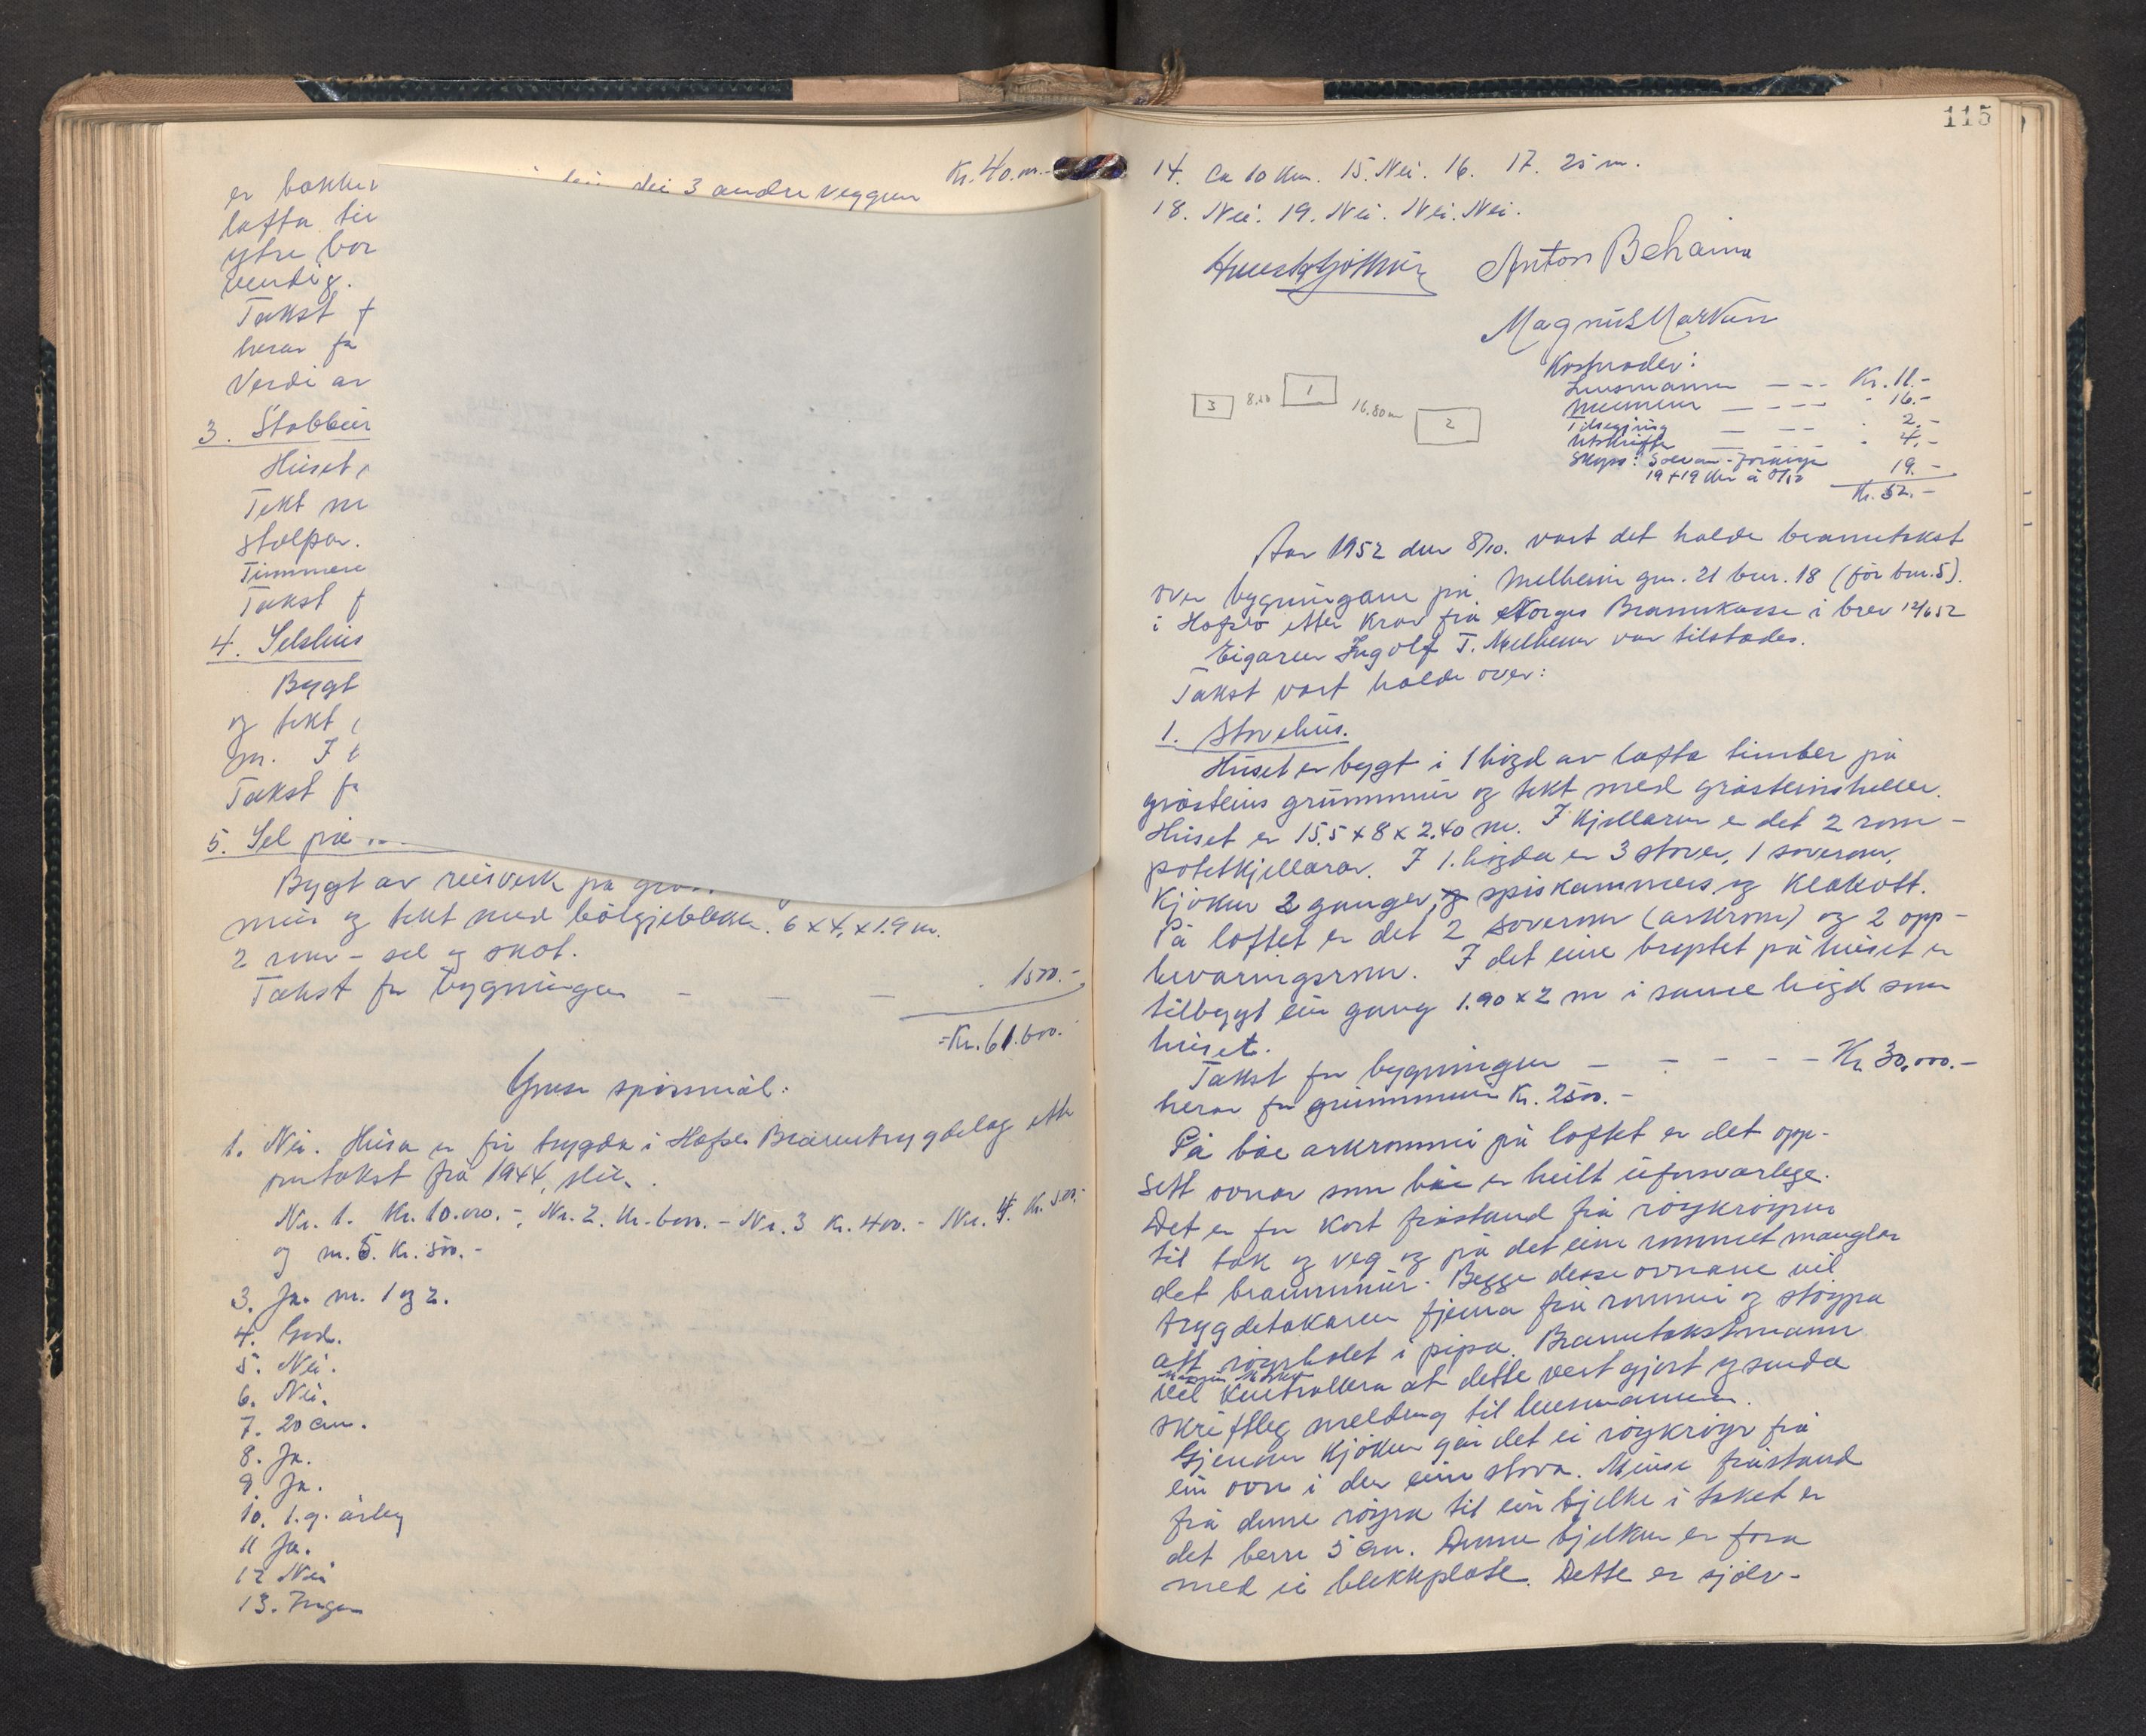 er bakker
Kr. 40.000.-
dei 3 andre veggar
lafta tim
ytre bor
vendig.
Takst f
herav for
Verdi av
3. Stabbur
Huset
Tekt m
stolpar.
Timmere
Takst f
4. Selshus
Bygt
og tekt
m. I
Takst for
5. Sel på
Bygt av reisverk på
mur og tekt med bölgjeblekk. 6 x 4, x 1.9 m.
2 rom - sel og skot.
Takst for bygningen - - - 1500.-
= Kr. 61.600.-
Grunn spörsmål:
1. Nei. Husa er för trygda i Hafslo Branntrygdelag etter
omtakst frå 1944, slik.
Nr. 1. Kr. 10.000.-, Nr. 2. Kr. 6000.- Nr. 3 Kr. 400.- Nr. 4. Kr. 500.-
og nr. 5. Kr. 500.-
3. Ja. nr. 1 og 2.
4. God.
5. Nei.
6. Nei.
7. 20 cm.
8. Ja.
9. Ja.
10. 1. g. årleg
11 Ja.
12 Nei
13. Ingen
115
14. Ca 10 km. 15. Nei. 16. 17. 25 m.
18. Nei. 19. Nei. Nei. Nei.
Anton Beheim
Magnus Marken
Kostnader:
Lensmannen - - - Kr. 11.-
Mennene - - - - " 16.-
Tilsegjing - - - " 2.-
Utskrifter - - - " 4.-
Skyss: Solvorn - Joranger
19 + 19 km à 0/50 19.-
Kr. 52.-
3 8.10 1 16.80 m 2
Aar 1952 den 8/10. vart det halde branntakst
over bygningane på Melheim gnr. 21 bnr. 18 (för bnr. 5).
i Hafslo etter krav frå Norges Brannkasse i brev 12/6 52
Eigaren Ingolf T. Melheim var tilstades.
Takst vart halde over:
1. Stovehus.
Huset er bygt i 1 högd av lafta timber på
gråsteins grunnmur og tekt med gråsteinsheller.
Huset er 15.5 x 8 x 2.40 m. I kjellaren er det 2 rom -
potetkjellarar. I 1. högda er 3 stover, 1 soverom,
kjöken 2 ganger, spiskammers og klakott.
På loftet er det 2 soverom (arkrom) og 2 opp-
bevaringsrom. I det eine breptet på huset er
tilbygt ein gang 1.90 x 2 m i same högd som
huset.
Takst for bygningen - - - - - Kr 30.000.-
herav for grunnmuren Kr. 2500.-
På båe arkrommi på loftet er det opp-
sett ovnar som båe er heilt uforsvarlege.
Det er for kort fråstand frå röykröyren
til tak og veg og på det eine rommet manglar
det brannmur. Begge desse ovnane vil
trygdetakaren fjerna frå rommi og stöypa
att röyrholet i pipa. Branntakstmann
Magnus Marken
vil kontrollera at dette vert gjort og senda
skriftleg melding til lensmannen.
Gjenom kjöken går det ei röykröyr frå
ein ovn i den eine stova. Minste fråstand
frå denne röyra til ein bjelke i taket er
det berre 5 cm. Denne bjelken er fora
med ei blekkplate. Dette er sjölv-